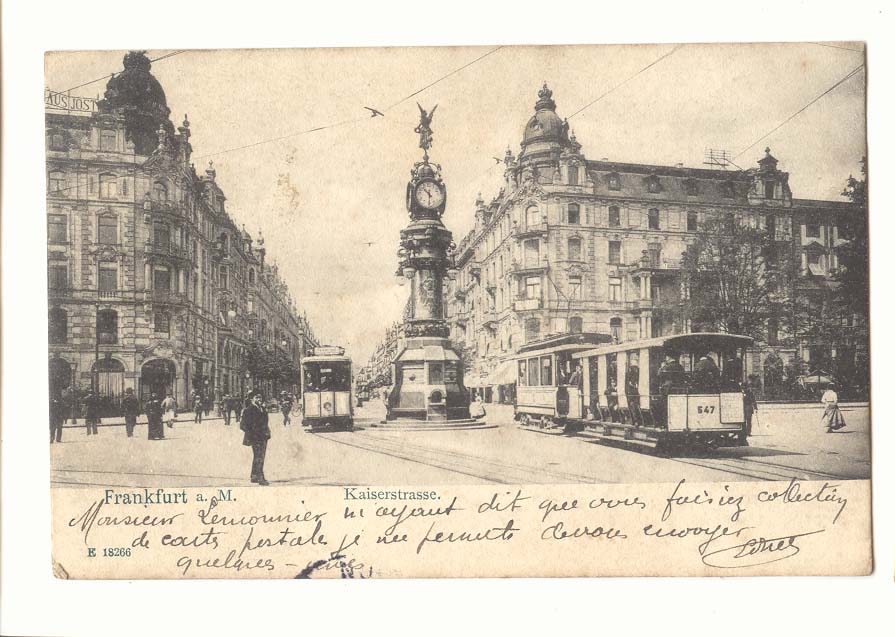 AUS JOST
547
Frankfurt a. M. Kaiserstrasse.
Monsieur Lemonnier m'ayant dit que vous faisiez collection
de carte postales je me permets de vous envoyer
quelques-unes
E 18266